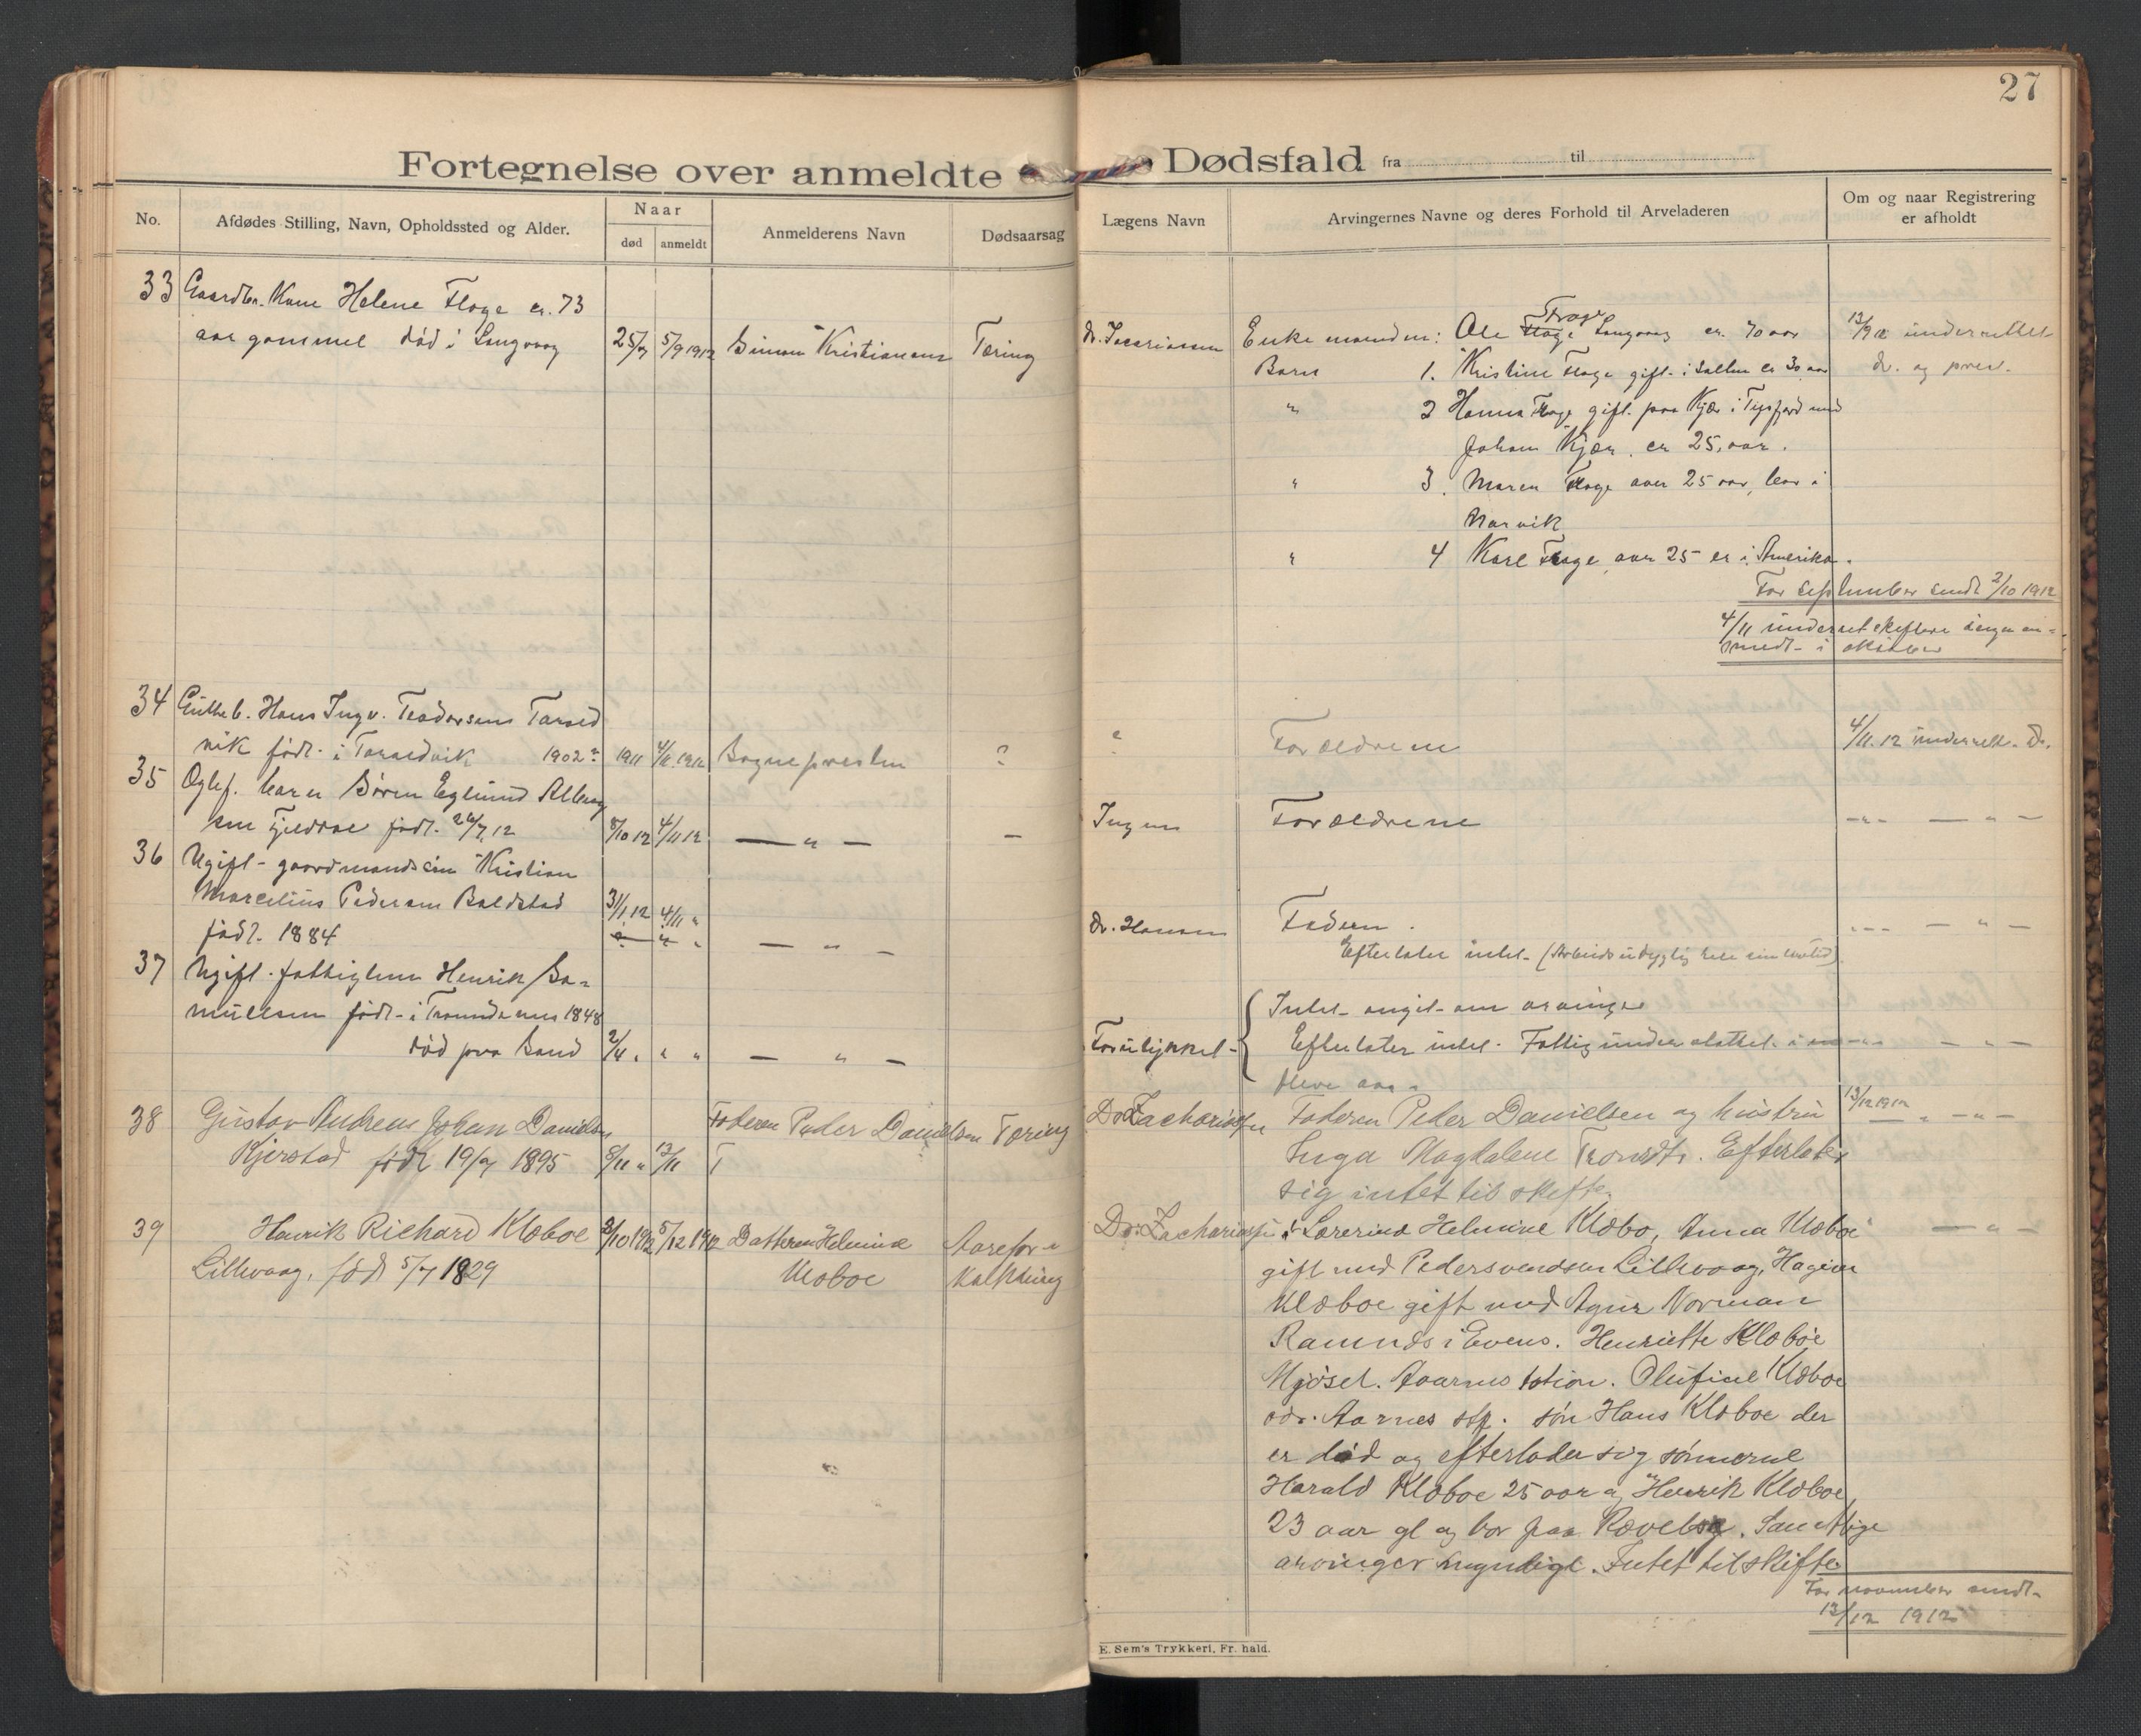 27
Fortegnelse over anmeldte Dødsfald fra til
No.
Afdødes Stilling, Navn, Opholdssted og Alder.
Naar
død anmeldt
Anmelderens Navn
Dødsaarsag
Lægens Navn
Arvingernes Navne og deres Forhold til Arveladeren
Om og naar Registrering
er afholdt
33 Gaardbr. Kone Helene Floge ca. 73
aar gammel død i Langvaag 25/7 5/9 1912 Simon Kristiansen Tæring
Enkemanden: Ole Langvaag ca. 70 aar 13/9 12 underrettet
Barn 1. Kristine Floge gift i Salten ca 30 aar
" 2 Hanna Floge gift paa Kjær i Tysfjord med
Johan Kjær, ca 25 aar.
" 3. Maren Floge over 25 aar, bor i
Narvik
" 4 Karl Floge over 25 er i Amerika.
For september sendt 2/10 1912
4/11 underret skifteret ingen an-
meldt i oktober
34 Hans Ingv. Teodorsen
født i 1902 1911 4/11 1912 Sognepresten ?
" Forældrene 4/11 12 underrett.
35 Søren Eglund
født 26/7 12 8/10 12 4/11 12 — " — —
Ingen Forældrene -"- — " —
36 Ugift gaardmandssøn Kristian
Marcelius Pedersen Boldstad 31/1 12 4/11 "
født 1884 — " —
Dr. Hansen Faderen.
Efterlater intet (Arbeidsudygtig hele sin levetid)
37 Ugift fattiglem Henrik Sa-
muelsen født i Trondenes 1848
død paa Sand 2/4 " " " — " —
Forulykket
Intet angit om arvinger
Efterlater intet. Fattigunderstøttet i
flere aar
38 Gustav Andreas Johan Danielsen
Kjerstad født 19/7 1895 8/11 " 13/11
Faderen Peder Danielsen Tæring
Dr Zachariassen Faderen Peder Danielsen og hustru 13/12 1912 — " —
Inga Magdalene Trondtr. Efterlater
sig intet til skifte.
39 Henrik Richard Klæboe 3/10 1912 5/12 1912 Datteren Helmine Aarefor-
Lillevaag, født 5/7 1829 Klæboe kalkning
Dr. Zachariassen Lærerinde Helmine Klæbo, Anna Klæboe — " —
gift med Peder Svendsen Lillevaag, Hagine
Klæboe gift med Agnus Norman
Ramnes i Evenes. Henriette Klæboe
Mjøsel. Aarnes station. Olufine Klæboe
adr. Aarnes stp. søn Hans Klæboe der
er død og efterlader sig sønnerne
Harald Klæboe 25 aar og Henrik Klæboe
23 aar gl og bor paa. Samtlige
arvinger myndige. Intet til skifte.
For november sendt
13/12 1912
E. Sem's Trykkeri, Fr.hald.